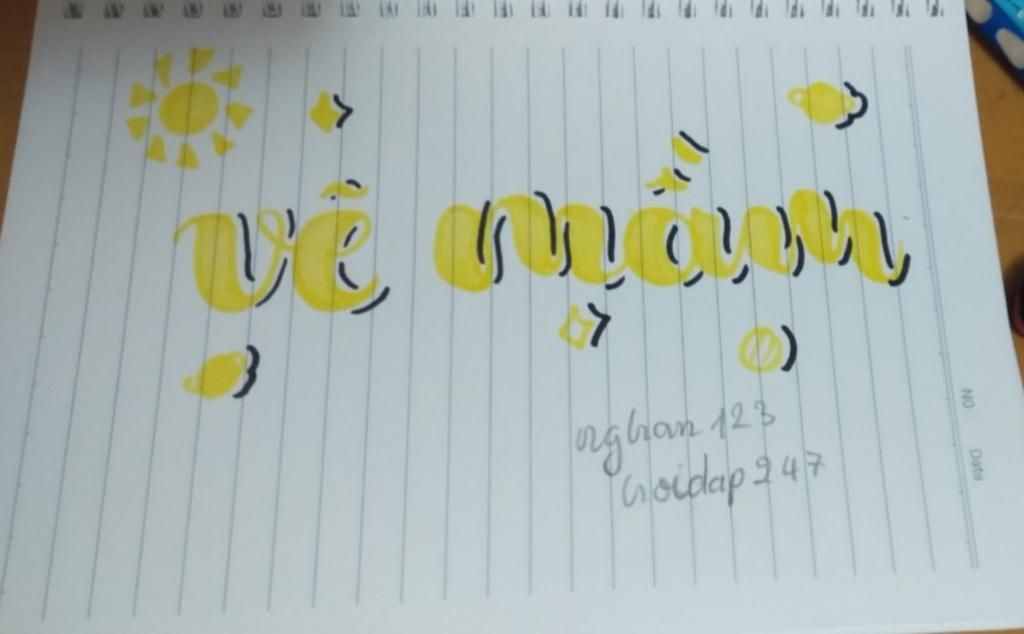 vẽ mầm
nghan 123
hoidap247
NO
Data